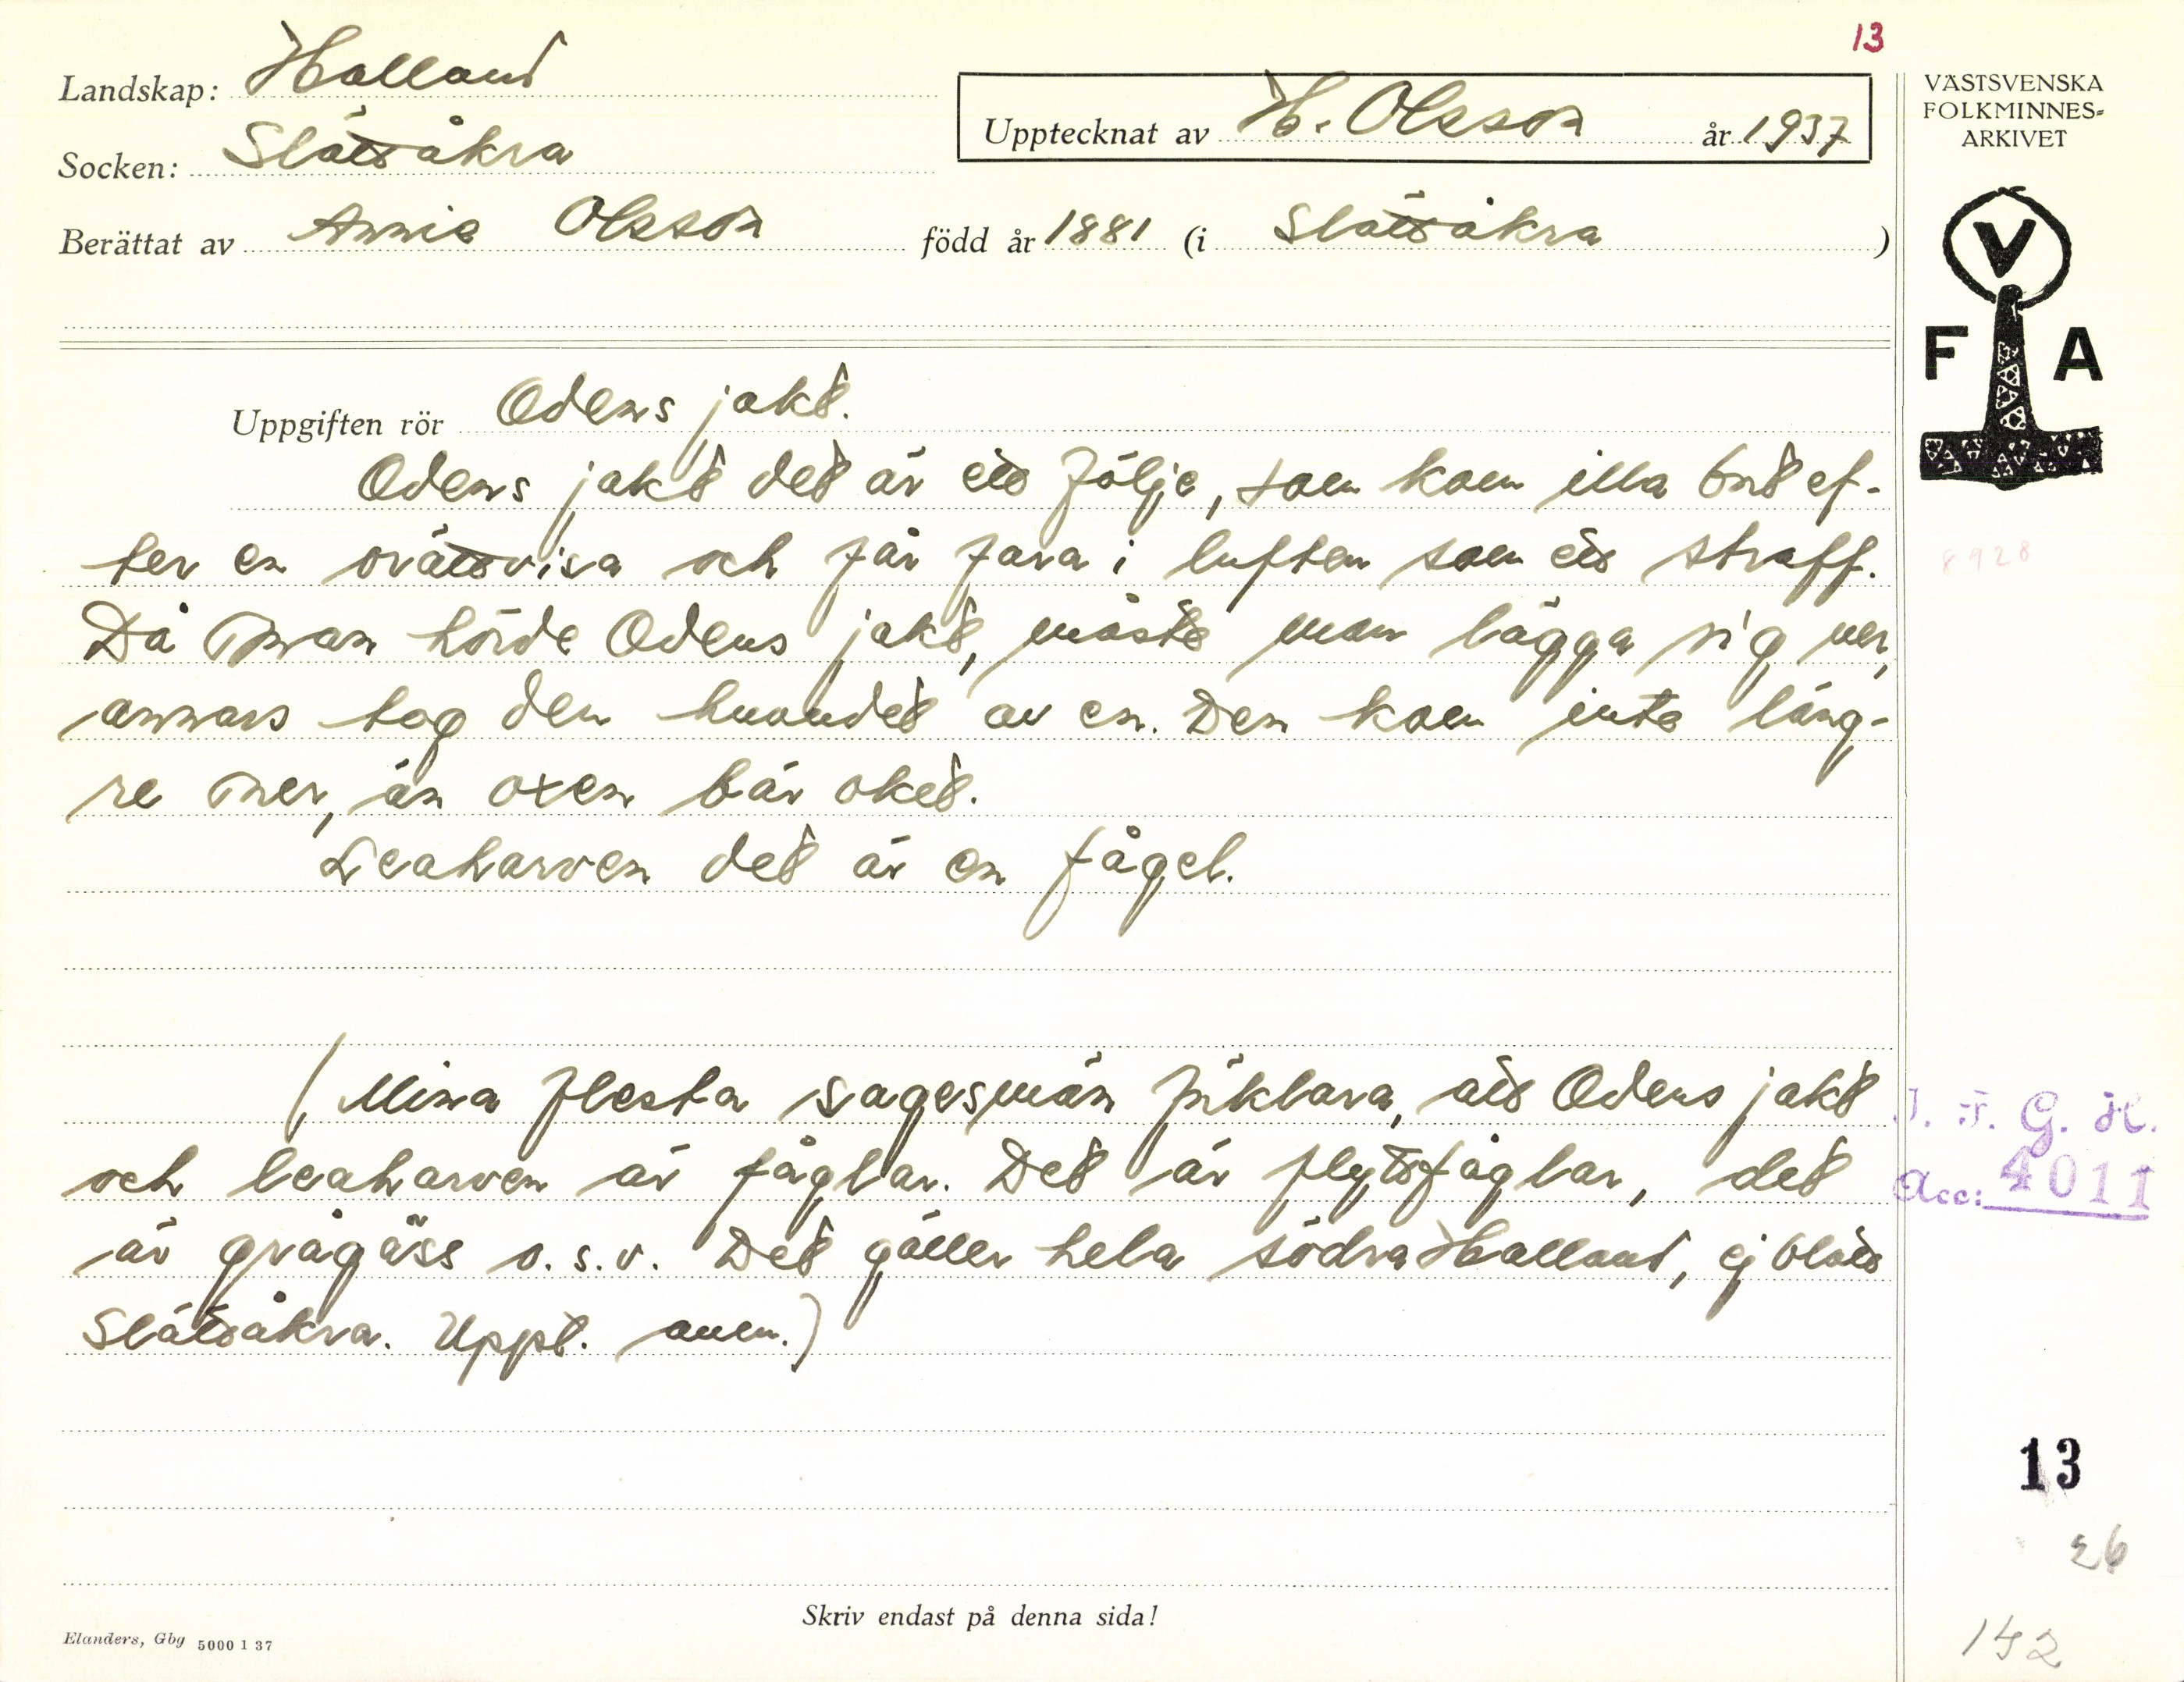 13
Landskap: Halland
Upptecknat av H. Olsson år 1937
VÄSTSVENSKA
FOLKMINNES-
ARKIVET
Socken: Slättåkra
Berättat av Annie Olsson född år 1881 (i Slättåkra)
V
F A
Uppgiften rör Odens jakt.
Odens jakt det är ett följe, som kom illa bort ef-
ter en orättvisa och får fara i luften som ett straff.
8928
Då man hörde Odens jakt, måste man lägga sig ner,
annars tog den huvudet av en. Den kom inte läng-
re ner, än oxen bär oket.
Leaharven det är en fågel.
(Mina flesta sagesmän förklara, att Odens jakt
och leaharven är fåglar. Det är flyttfåglar, det
är grågäss o.s.v. Det gäller hela södra Halland, ej blott
Slättåkra. Uppt. anm.)
I. F. G. H.
Acc: 4011
13
26
142
Skriv endast på denna sida!
Elanders, Gbg 5000 1 37